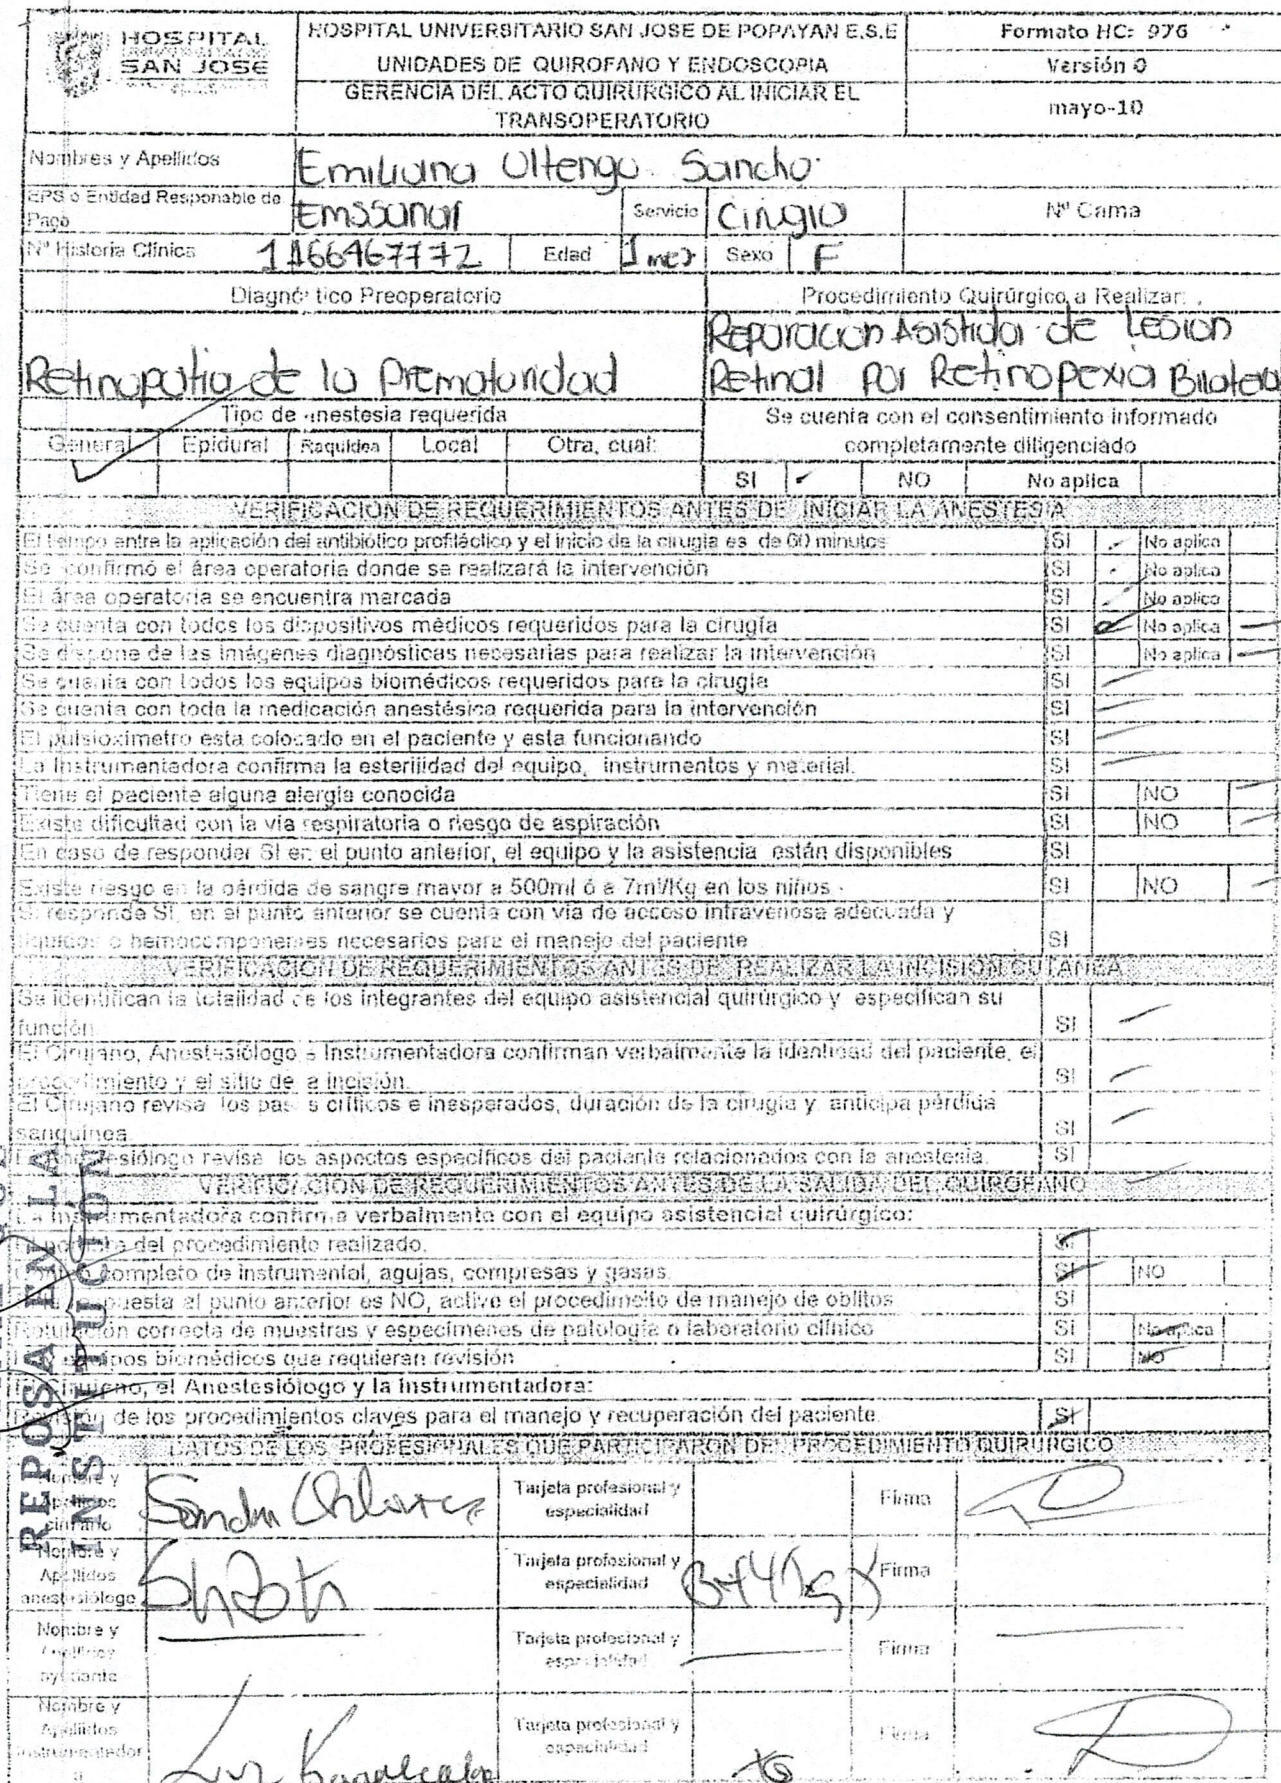 HOSPITAL
SAN JOSE
HOSPITAL UNIVERSITARIO SAN JOSE DE POPAYAN E.S.E
UNIDADES DE QUIROFANO Y ENDOSCOPIA
GERENCIA DEL ACTO QUIRURGICO AL INICIAR EL
TRANSOPERATORIO
Formato HC: 976
Versión 0
mayo-10
Nombres y Apellidos Emiliana Ultengo Sancho
EPS o Entidad Responable de Pago Emssanar Servicio Cirugio Nº Cama
Nº Historia Clínica 11666467772 Edad 1 mes Sexo F
Diagnóstico Preoperatorio Procedimiento Quirúrgico a Realizar:
Reparacion Asistida de Lesion
Retinopatia de la Prematuridad Retinal Por Retinopexia Bilateral
Tipo de anestesia requerida Se cuenta con el consentimiento informado
General Epidural Raquidea Local Otra, cual: completamente diligenciado
SI ✓ NO No aplica
VERIFICACION DE REQUERIMIENTOS ANTES DE INICIAR LA ANESTESIA
El tempo entre la aplicación del antibiótico profiláctico y el inicio de la cirugía es de 60 minutos SI No aplica
Se confirmó el área operatoria donde se realizará la intervención SI No aplica
El área operatoria se encuentra marcada SI No aplica
Se cuenta con todos los dispositivos médicos requeridos para la cirugía SI No aplica
Se dispone de las imágenes diagnósticas necesarias para realizar la intervención SI No aplica
Se cuenta con todos los equipos biomédicos requeridos para la cirugía SI
Se cuenta con toda la medicación anestésica requerida para la intervención SI
El pulsioximetro esta colocado en el paciente y esta funcionando SI
La Instrumentadora confirma la esterilidad del equipo, instrumentos y material. SI
Tiene el paciente alguna alergia conocida SI NO
Existe dificultad con la via respiratoria o riesgo de aspiración SI NO
En caso de responder SI en el punto anterior, el equipo y la asistencia están disponibles SI
Existe riesgo en la pérdida de sangre mayor a 500ml ó a 7ml/Kg en los niños SI NO
Si responde SI, en el punto anterior se cuenta con via de acceso intravenosa adecuada y
líquidos o hemocomponentes necesarios para el manejo del paciente SI
VERIFICACION DE REQUERIMIENTOS ANTES DE REALIZAR LA INCISION CUTANEA
Se identifican la totalidad de los integrantes del equipo asistencial quirúrgico y especifican su
función SI
El Cirujano, Anestesiólogo e Instrumentadora confirman verbalmente la identidad del paciente, el
procedimiento y el sitio de la incisión. SI
El Cirujano revisa los pasos críticos e inesperados, duración de la cirugía y anticipa pérdida
sanguinea SI
El Anestesiólogo revisa los aspectos específicos del paciente relacionados con la anestesia. SI
VERIFICACIÓN DE REQUERIMIENTOS ANTES DE LA SALIDA DEL QUIROFANO
La Instrumentadora confirma verbalmente con el equipo asistencial quirúrgico:
El nombre del procedimiento realizado. SI
Conteo completo de instrumental, agujas, compresas y gasas. SI NO
puesta al punto anterior es NO, active el procedimeito de manejo de oblitos SI
Rotulación correcta de muestras y especimenes de patología o laboratorio clínico SI No aplica
equipos biomédicos que requieran revisión SI NO
El Cirujano, el Anestesiólogo y la Instrumentadora:
Revisión de los procedimientos claves para el manejo y recuperación del paciente. SI
DATOS DE LOS PROFESIONALES QUE PARTICIPARON DEL PROCEDIMIENTO QUIRURGICO
Nombre y Apellidos cirujano Sandra Tarjeta profesional y especialidad Firma
Nombre y Apellidos anestesiólogo Tarjeta profesional y especialidad Firma
Nombre y Apellidos ayudante Tarjeta profesional y especialidad Firma
Nombre y Apellidos instrumentadora Luz Tarjeta profesional y especialidad Firma
REPOSA EN LA
INSTITUCIÓN